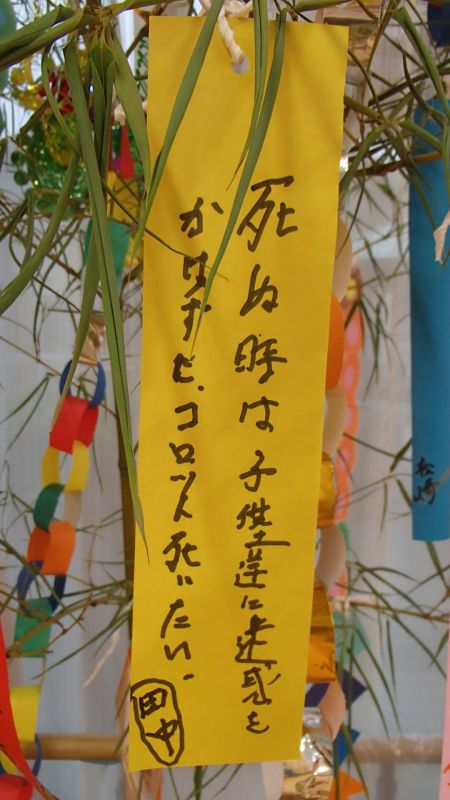 死ぬ時は子供達に迷惑を
かけずに、コロット死にたい。
田中
松崎